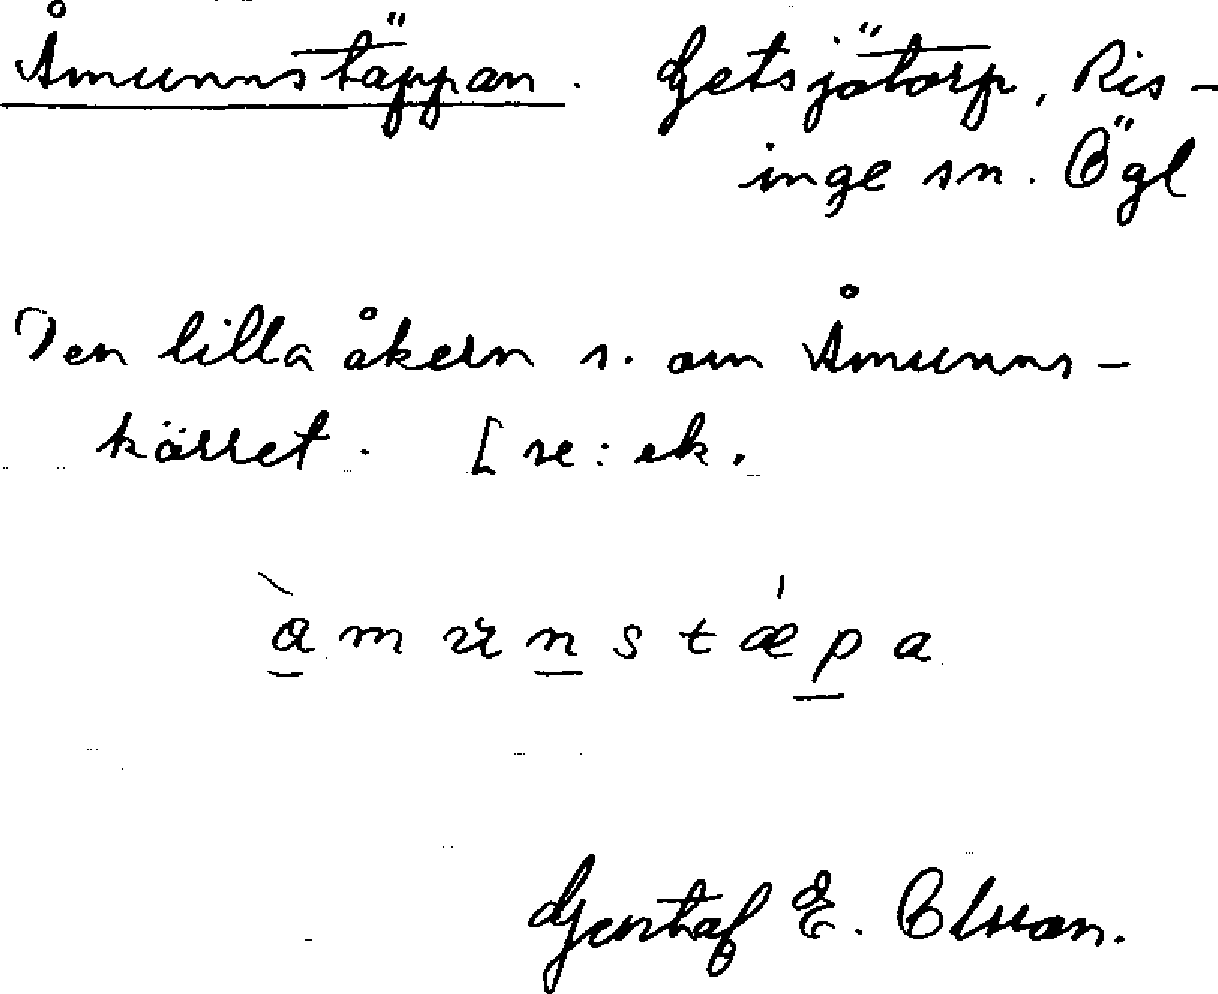 Åmunnstäppan. Getsjötorp, Ris-
inge sn. Ögl
Den lilla åkern s. om Åmunns-
kärret. [se: ek.
àmunstǽpa
Gustaf E. Olsson.